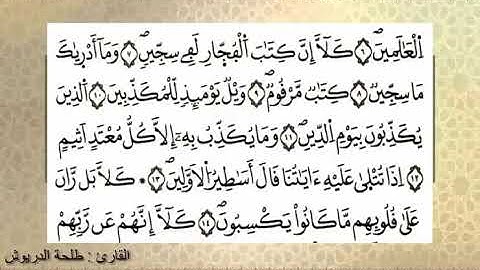 اَ۬لْعَٰلَمِينَۖ ۝٦ كَلَّآ إِنَّ كِتَٰبَ اَ۬لْفُجّ۪ارِ لَفِے سِجِّينٖۖ ۝٧ وَمَآ أَدْر۪يٰكَ
مَا سِجِّينٞۖ ۝٨ كِتَٰبٞ مَّرْقُومٞۖ ۝٩ وَيْلٞ يَوْمَئِذٖ لِّلْمُكَذِّبِينَ ۝١٠ اَ۬لذِينَ
يُكَذِّبُونَ بِيَوْمِ اِ۬لدِّينِۖ ۝١١ وَمَا يُكَذِّبُ بِهِۦٓ إِلَّا كُلُّ مُعْتَدٍ اَثِيمٍ
۝١٢ اِذَا تُتْل۪يٰ عَلَيْهِ ءَايَٰتُنَا قَالَ أَسَٰطِيرُ اُ۬لَاوَّلِينَۖ ۝١٣ كَلَّا بَل رَّانَ
عَلَيٰ قُلُوبِهِم مَّا كَانُواْ يَكْسِبُونَۖ ۝١٤ كَلَّآ إِنَّهُمْ عَن رَّبِّهِمْ
القارئ : طلحة الدريوش